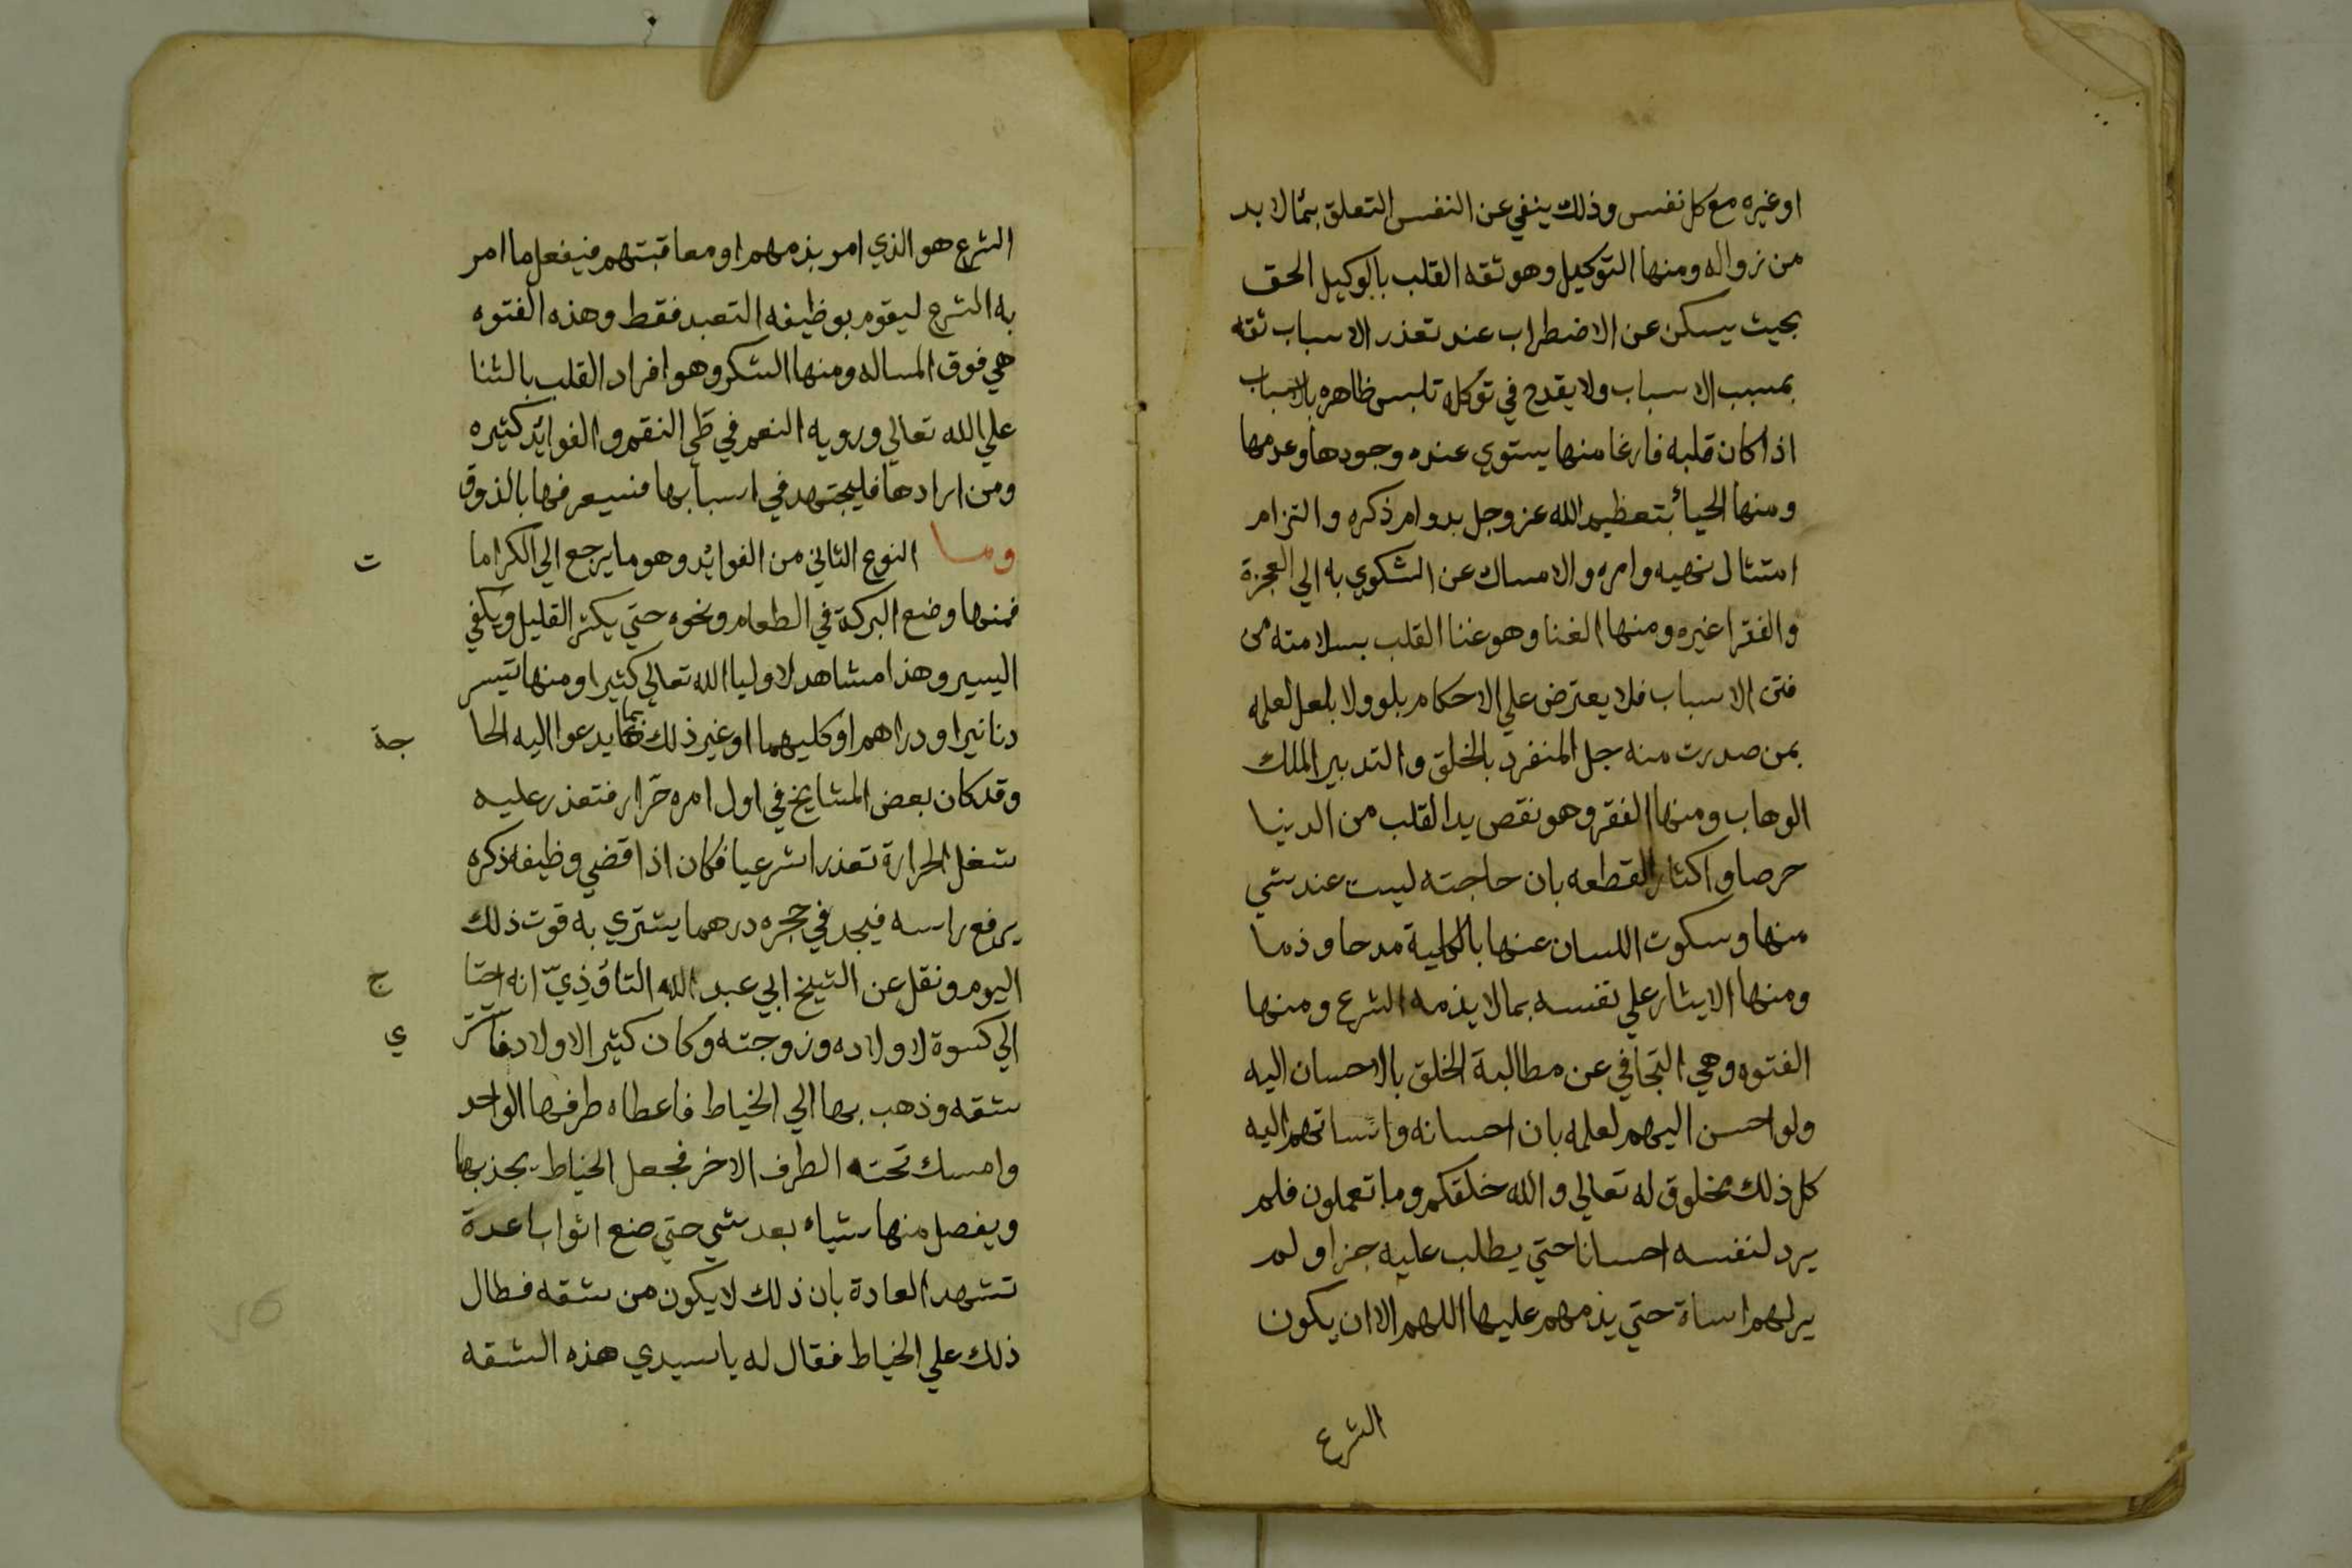 او غيره مع كل نفس وذلك ينفي عن النفس التعلق بما لا بد
من زواله ومنها التوكيل وهو ثقه القلب بالوكيل الحق
بحيث يسكن عن الاضطراب عند تعذر الاسباب ثقه
بمسبب الاسباب ولا يقدح في توكله تلبس ظاهره بالاسباب
اذا كان قلبه فارغا منها يستوي عنده وجودها وعدمها
ومنها الحيا بتعظيم الله عز وجل بدوام ذكره والتزام
امتثال نهيه وامره والامساك عن الشكوي به الي العجزة
والفقرا غيره ومنها الغنا وهو غنا القلب بسلامته من
فتن الاسباب فلا يعترض علي الاحكام بلو ولا بلعل لعلمه
بمن صدرت منه جل المنفرد بالخلق والتدبير الملك
الوهاب ومنها الفقر وهو نقص يد القلب من الدنيا
حرصا واكثارا لقطعه بان حاجته ليست عند شي
منها وسكوت اللسان عنها بالكلية مدحا وذما
ومنها الايثار علي نفسه بما لا يذمه الشرع ومنها
الفتوه وهي التجافي عن مطالبة الخلق بالاحسان اليه
ولو احسن اليهم لعلمه بان احسانه واساتهم اليه
كل ذلك مخلوق له تعالي والله خلقكم وما تعملون فلم
يرد لنفسه احسانا حتي يطلب عليه جزا ولم
ير لهم اساة حتي يذمهم عليها اللهم الا ان يكون
الشرع
الشرع هو الذي امر بذمهم او معاقبتهم فيفعل ما امر
به الشرع ليقوم بوظيفه التعبد فقط وهذه الفتوه
هي فوق المساله ومنها الشكر وهو افراد القلب بالثنا
علي الله تعالي ورويه النعم في طي النقم والفوائد كثيره
ومن ارادها فليجتهد في اسبابها فسيعرفها بالذوق
وما النوع الثاني من الفوائد وهو ما يرجع الي الكراما ت
فمنها وضع البركة في الطعام ونحوه حتي يكثر القليل ويكفي
اليسير وهذا مشاهد لاوليا الله تعالي كثيرا ومنها تيسر
دنانير او دراهم او كليهما او غير ذلك مما يدعوا اليه الحا جة
وقد كان بعض المشايخ في اول امره حرار فتعذر عليه
شغل الحرارة تعذرا شرعيا فكان اذا قضي وظيفه ذكره
يرفع راسه فيجد في حجره درهما يشتري به قوت ذلك
اليوم ونقل عن الشيخ ابي عبد الله التاوذي انه احتا ج
الي كسوة لاولاده وزوجته وكان كثير الاولاد فاشتر ي
شقه وذهب بها الي الخياط فاعطاه طرفها الواحد
وامسك تحته الطرف الاخر فجعل الخياط يجذبها
ويفصل منها شياء بعد شي حتي صنع اثوابا عدة
تشهد العادة بان ذلك لا يكون من شقه فطال
ذلك علي الخياط فقال له يا سيدي هذه الشقه